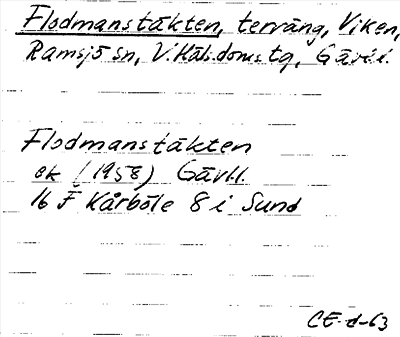 Flodmanstäkten, terräng, Viken,
Ramsjö sn, V.Häls.doms tg, Gävl.l.
Flodmanstäkten
ek (1958) Gävl.l.
16 F Kårböle 8 i Sund
CE-d-63